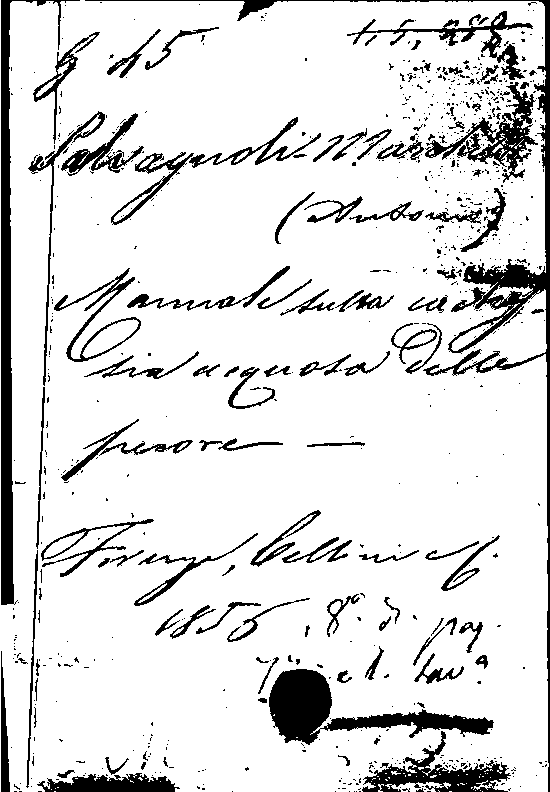 G 45
Salvagnoli-Marchetti
(Antonio)
Manuale sulla cachess-
sia acquosa delle
pecore —
Firenze, Cellini e C.
1856, 8º. di pag.
e 1. tavª